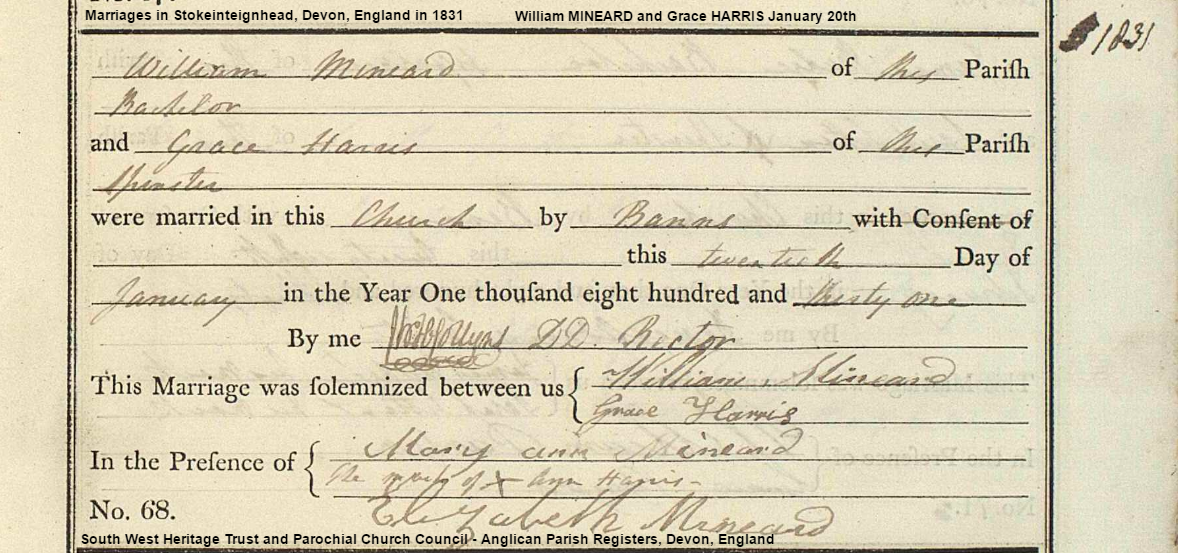 Marriages in Stokeinteignhead, Devon, England in 1831 William MINEARD and Grace HARRIS January 20th
1831
William Mineard of this Pariſh
Bachelor
and Grace Harris of this Pariſh
Spinster
were married in this Church by Banns with Conſent of
this twentieth Day of
January in the Year One thouſand eight hundred and thirty one
By me DD. Rector
This Marriage was ſolemnized between us { William Mineard
Grace Harris
In the Preſence of { Mary ann Mineard
the mark of X Ann Harris
Elizabeth Mineard
No. 68.
South West Heritage Trust and Parochial Church Council - Anglican Parish Registers, Devon, England